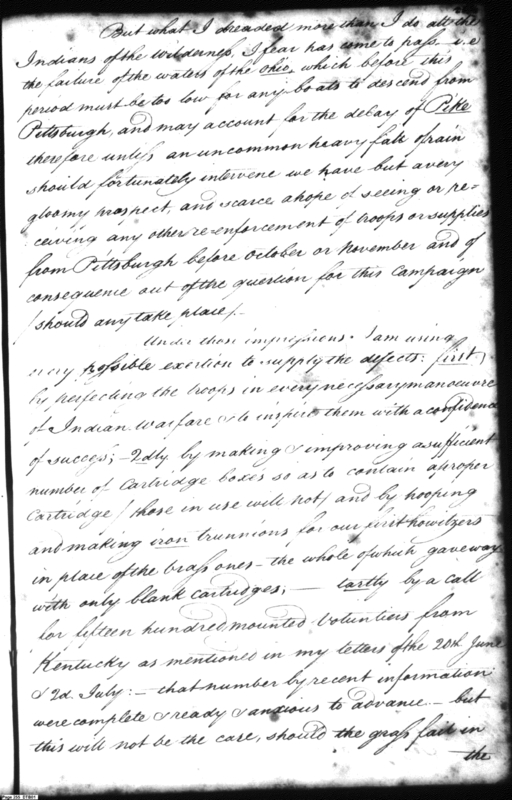 But what I dreaded more than I do all the
Indians of the wilderness, I fear has come to pass — i.e
the failure of the waters of the Ohio, which before this
period must be too low for any boats to descend from
Pittsburgh, and may account for the delay of Pike
therefore unless an uncommon heavy fall of rain
should fortunately intervene we have but a very
gloomy prospect, and scarce a hope of seeing or re=
ceiving any other re-enforcement of troops or supplies
from Pittsburgh before October or November and of
consequence out of the question for this Campaign
/should any take place/.—
Under those impressions I am using
every possible exertion to supply the defects: first,
by perfecting the troops in every necessary manoeuvre
of Indian Warfare & to inspire them with a confidence
of success; — 2dly by making & improving a sufficient
number of Cartridge boxes so as to contain a proper
Cartridge /those in use will not/ and by hooping
and making iron trunnions for our first howitzers
in place of the brass ones — the whole of which gave way
with only blank cartridges; — lastly by a call
for fifteen hundred mounted Voluntiers from
Kentucky as mentioned in my letters of the 20th June
& 2d. July: — that number by recent information
were complete & ready & anxious to advance — but
this will not be the case, should the grass fail in
the